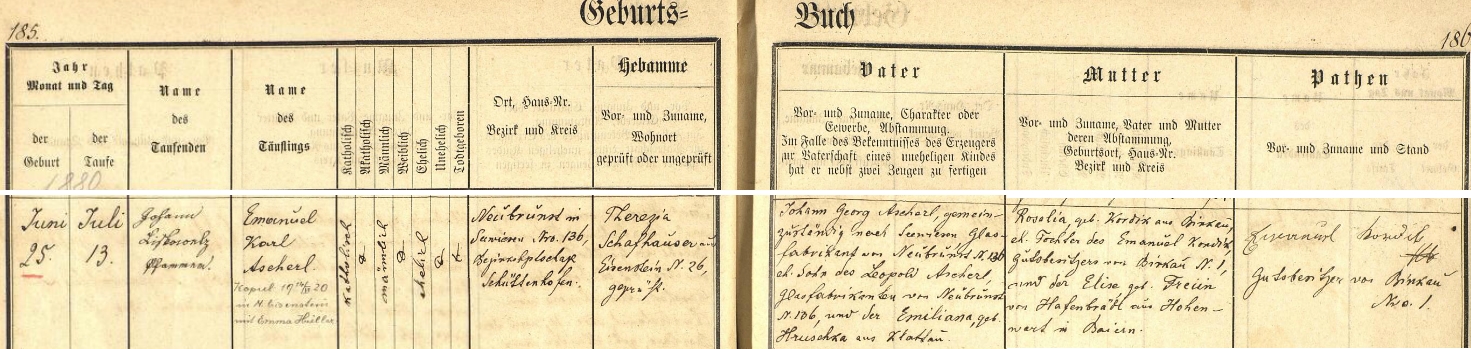 185.
Geburts=
Buch
186
Jahr
Monat und Tag
der
Geburt
der
Taufe
Name
des
Taufenden
Name
des
Täuflings
Katholisch
Akatholisch
Männlich
Weiblich
Ehelich
Unehelich
Todtgeboren
Ort, Haus-Nr.
Bezirk und Kreis
Hebamme
Vor- und Zuname,
Wohnort
geprüft oder ungeprüft
Vater
Vor- und Zuname, Charakter oder
Gewerbe, Abstammung.
Im Falle des Bekenntnisses des Erzeugers
zur Vaterschaft eines unehelichen Kindes
hat er nebst zwei Zeugen zu fertigen
Mutter
Vor- und Zuname, Vater und Mutter
deren Abstammung,
Geburtsort, Haus-Nr.
Bezirk und Kreis
Pathen
Vor- und Zuname und Stand
1880
Juni
25.
Juli
13.
Johann
Pfarrer.
Emanuel
Karl
Ascherl.
Kopul 19 20
in M. Eisenstein
mit Emma Hüller
katholisch
männlich
ehelich
Neubrunst in
Nro. 136,
Schüttenhofen.
Theresia
Schafhauser aus
Eisenstein N. 26,
geprüft.
Johann Georg Ascherl, gemein-
zuständig nach Glas-
fabrikant von Neubrunst N. 136
eh. Sohn des Leopold Ascherl
Glasfabrikanten von Neubrunst
N. 136, und der Emiliana, geb.
Hruschka aus Klattau.
Rosalia, geb. Kordik aus Birkau,
eh. Tochter des Emanuel Kordik,
Gutsbesitzers von Birkau N. 1,
und der Elise geb. Freiin
von Hafenbrädl aus Hohen-
wart in Baiern.
Emanuel Kordik
Gutsbesitzer von Birkau
Nro. 1.